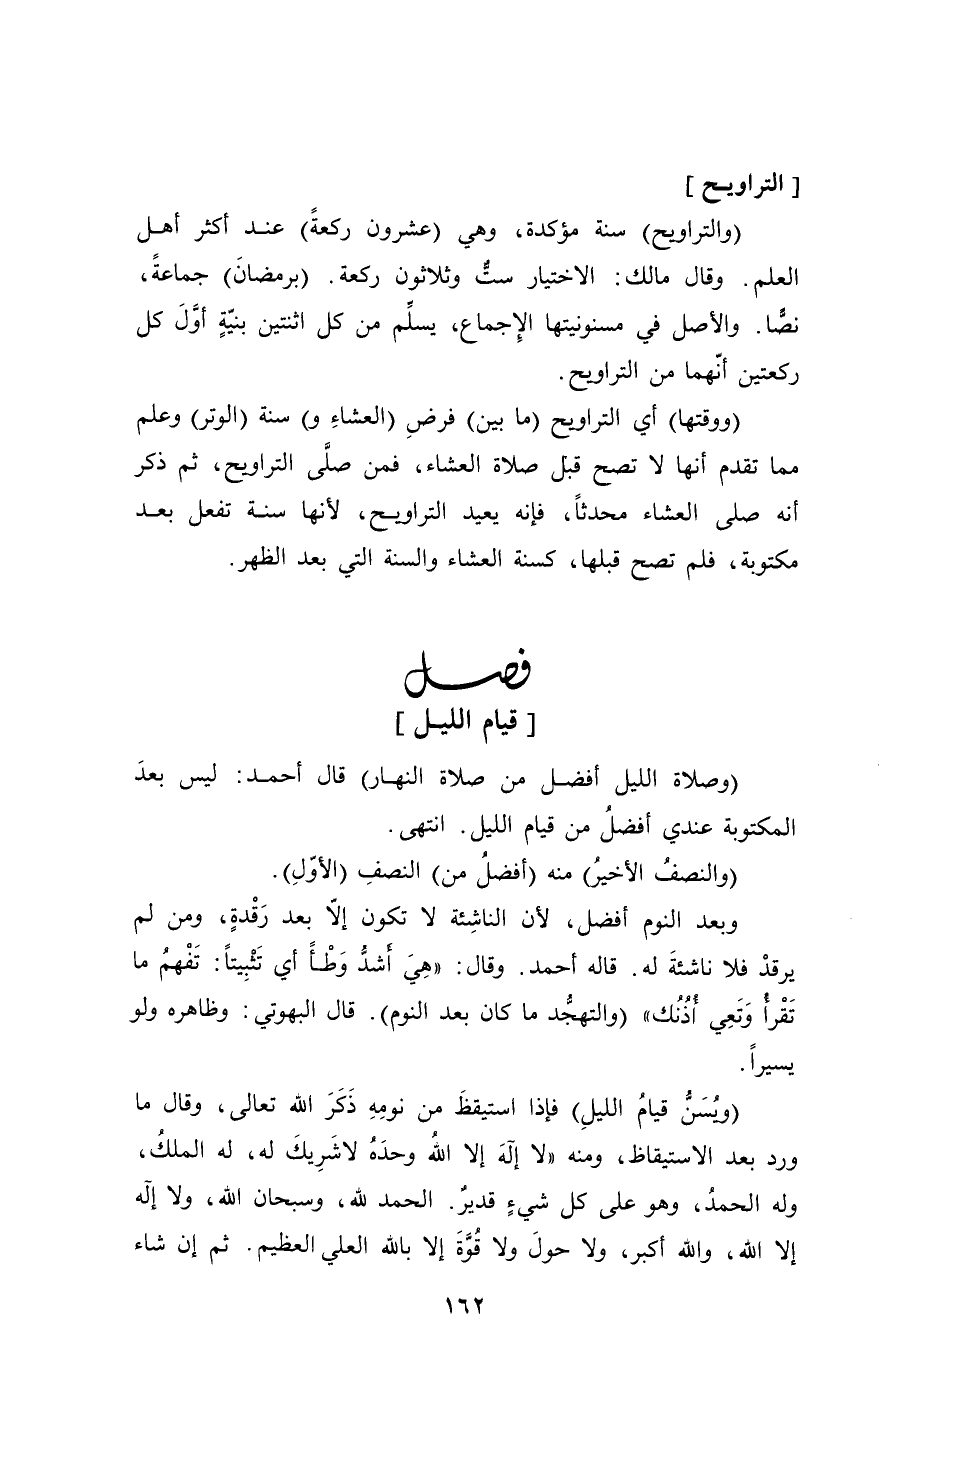 [ التراويـح ]
(والتراويح) سنة مؤكدة، وهي (عشرون ركعةً) عنـد أكثر أهـل
العلم. وقال مالك: الاختيار ستٌّ وثلاثون ركعة. (برمضانَ) جماعةً،
نصًّا. والأصل في مسنونيتها الإِجماع، يسلِّم من كل اثنتين بنيّةٍ أوَّلَ كل
ركعتين أنّهما من التراويح.
(ووقتها) أي التراويح (ما بين) فرضِ (العشاءِ و) سنة (الوتر) وعلم
مما تقدم أنها لا تصح قبل صلاة العشاء، فمن صلَّى التراويح، ثم ذكر
أنه صلى العشاء محدثاً، فإنه يعيد التراويـح، لأنها سنـة تفعل بعـد
مكتوبة، فلم تصح قبلها، كسنة العشاء والسنة التي بعد الظهر.
فصـل
[ قيام الليـل ]
(وصلاة الليل أفضـل من صلاة النهـار) قال أحمـد: ليس بعدَ
المكتوبة عندي أفضلُ من قيام الليل. انتهى.
(والنصفُ الأخيرُ) منه (أفضلُ من) النصفِ (الأوّلِ).
وبعد النوم أفضل، لأن الناشِئة لا تكون إلّا بعد رَقْدةٍ، ومن لم
يرقدْ فلا ناشئةَ له. قاله أحمد. وقال: «هِيَ أَشدُّ وَطْـأً أي تَثْبِيتاً: تَفْهمُ ما
تَقْرأُ وَتَعِي أُذُنُك» (والتهجُّد ما كان بعد النوم). قال البهوتي: وظاهره ولو
يسيراً.
(ويُسَنُّ قيامُ الليلِ) فإذا استيقظَ من نومِهِ ذَكَرَ الله تعالى، وقال ما
ورد بعد الاستيقاظ، ومنه «لا إلَهَ إلا اللهُ وحدَهُ لاشَرِيكَ له، له الملكُ،
وله الحمدُ، وهو على كل شيءٍ قديرٌ. الحمد لله، وسبحان الله، ولا إلَه
إلا الله، والله أكبر، ولا حولَ ولا قُوَّةَ إلا بالله العلي العظيم. ثم إن شاء
١٦٢